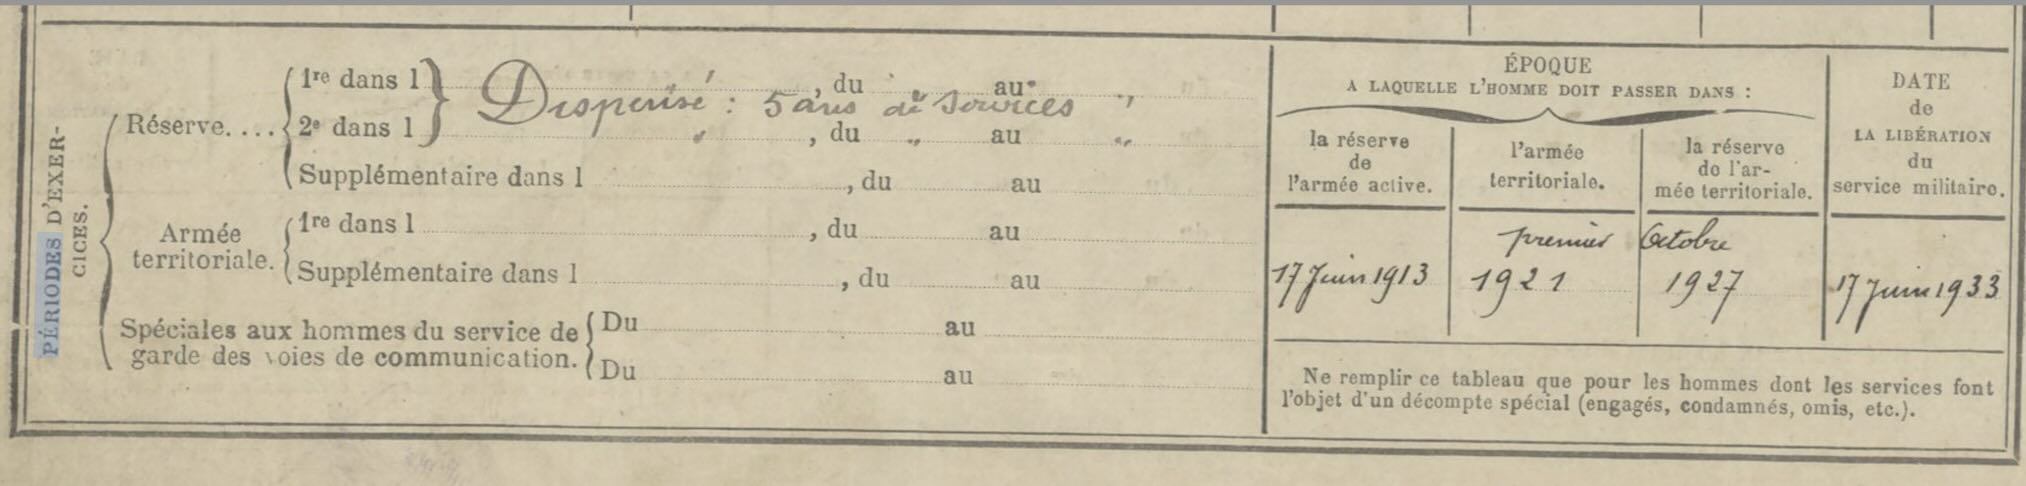 PÉRIODES D'EXER-
CICES.
Réserve....
1re dans l , du au
Dispensé : 5 ans de services
2e dans l , du " au "
Supplémentaire dans l , du au
Armée
territoriale.
1re dans l , du au
Supplémentaire dans l , du au
Spéciales aux hommes du service de
garde des voies de communication.
Du au
Du au
ÉPOQUE
A LAQUELLE L'HOMME DOIT PASSER DANS :
la réserve
de
l'armée active.
l'armée
territoriale.
la réserve
de l'ar-
mée territoriale.
DATE
de
LA LIBÉRATION
du
service militaire.
premier Octobre
17 Juin 1913
1921
1927
17 Juin 1933
Ne remplir ce tableau que pour les hommes dont les services font
l'objet d'un décompte spécial (engagés, condamnés, omis, etc.).